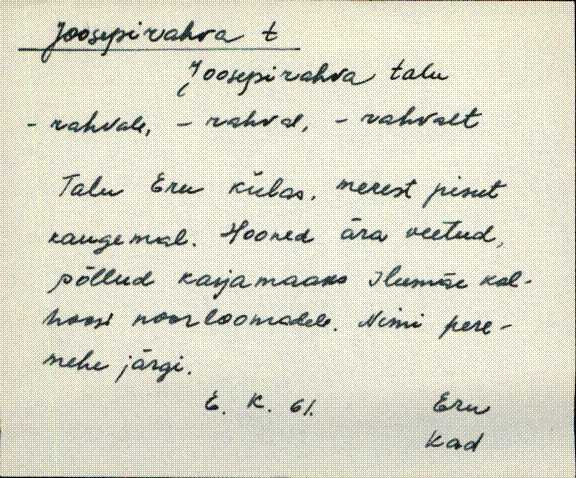 Joosepirahva t
Joosepirahva talu
- rahvale, - rahval, - rahvalt
Talu Eru külas, merest pisut
kaugemal. Hooned ära veetud,
põllud karjamaaks Ilumäe kol-
hoosi noorloomadele. Nimi pere-
mehe järgi.
E. K. 61. Eru
Kad